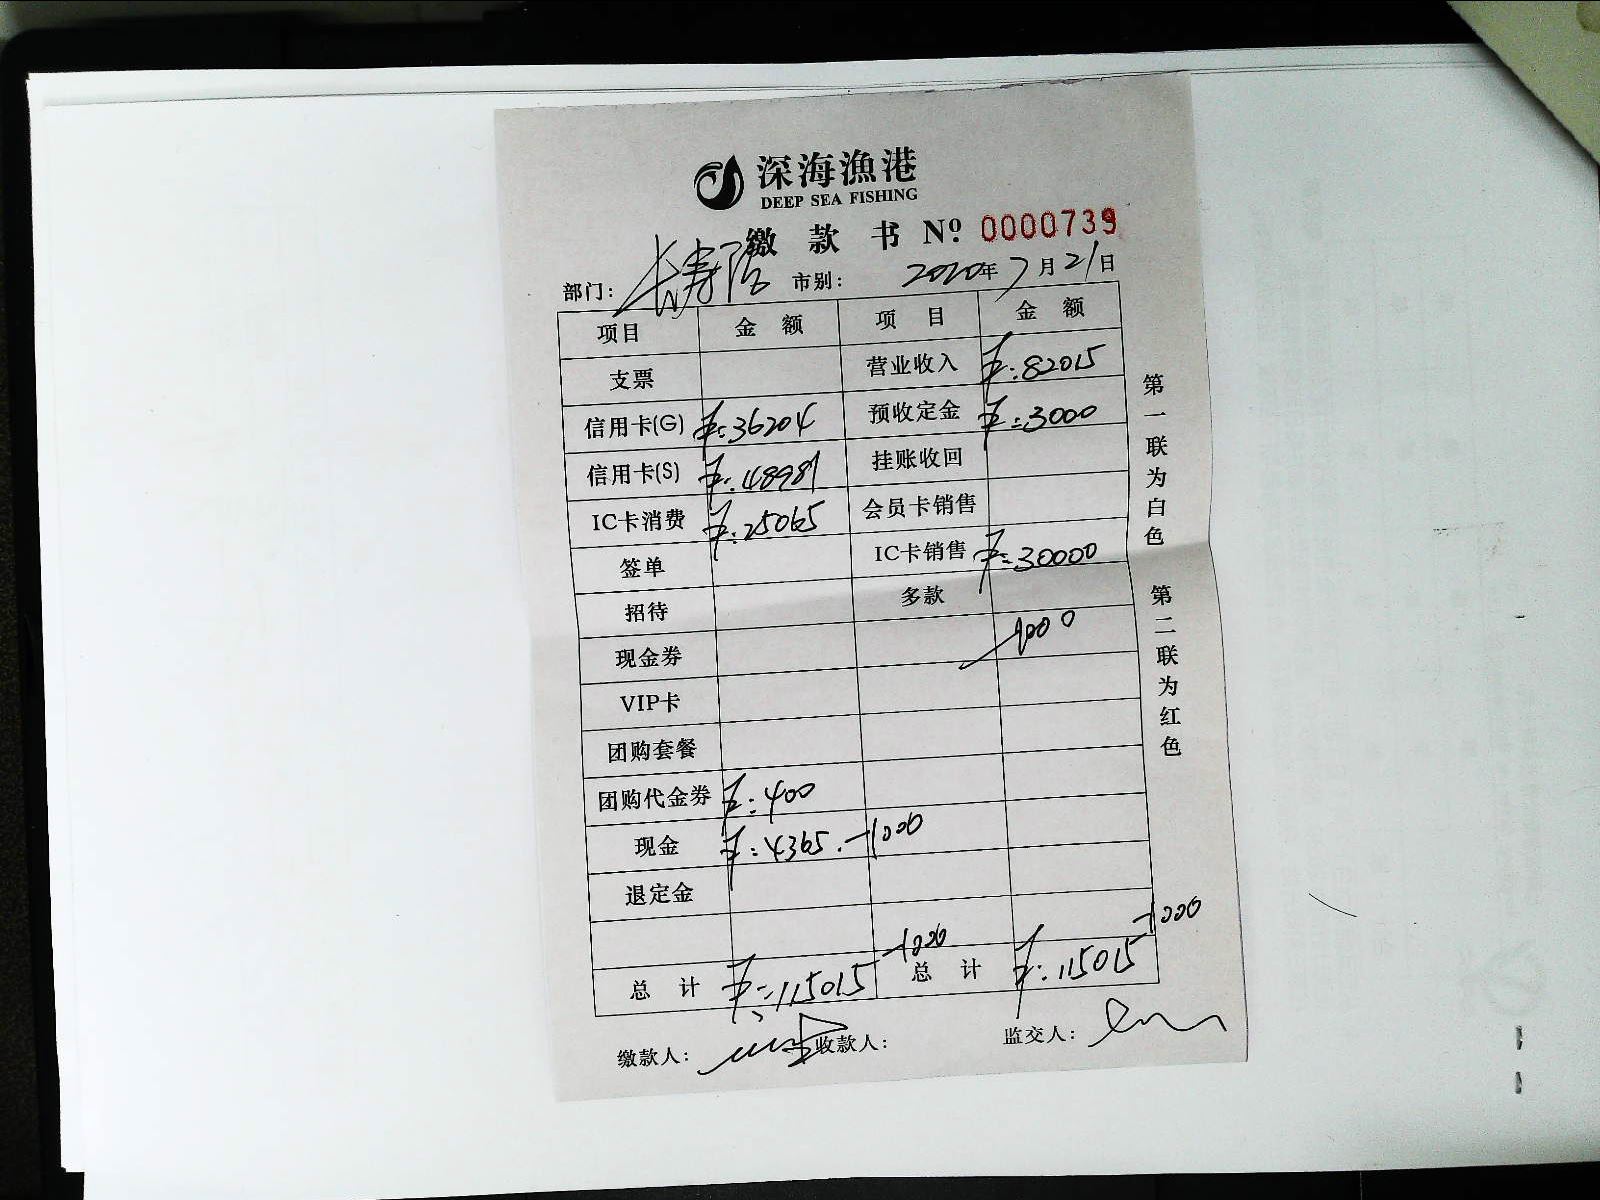 深海漁港
DEEP SEA FISHING
缴款书 Nº. 0000739
部门: 长寿店 市别: 2020年7月21日
项目 金额 项目 金额
支票 营业收入 ¥:82015
信用卡(G) ¥:36204 预收定金 ¥:3000
信用卡(S) ¥:48981 挂账收回
IC卡消费 ¥:25065 会员卡销售
签单 IC卡销售 ¥:30000
招待 多款
现金券 -1000
VIP卡
团购套餐
团购代金券 ¥:400
现金 ¥:4365. -1000
退定金
总计 ¥:115015 -1000 总计 ¥:115015 -1000
缴款人: 收款人: 监交人:
第一联为白色 第二联为红色